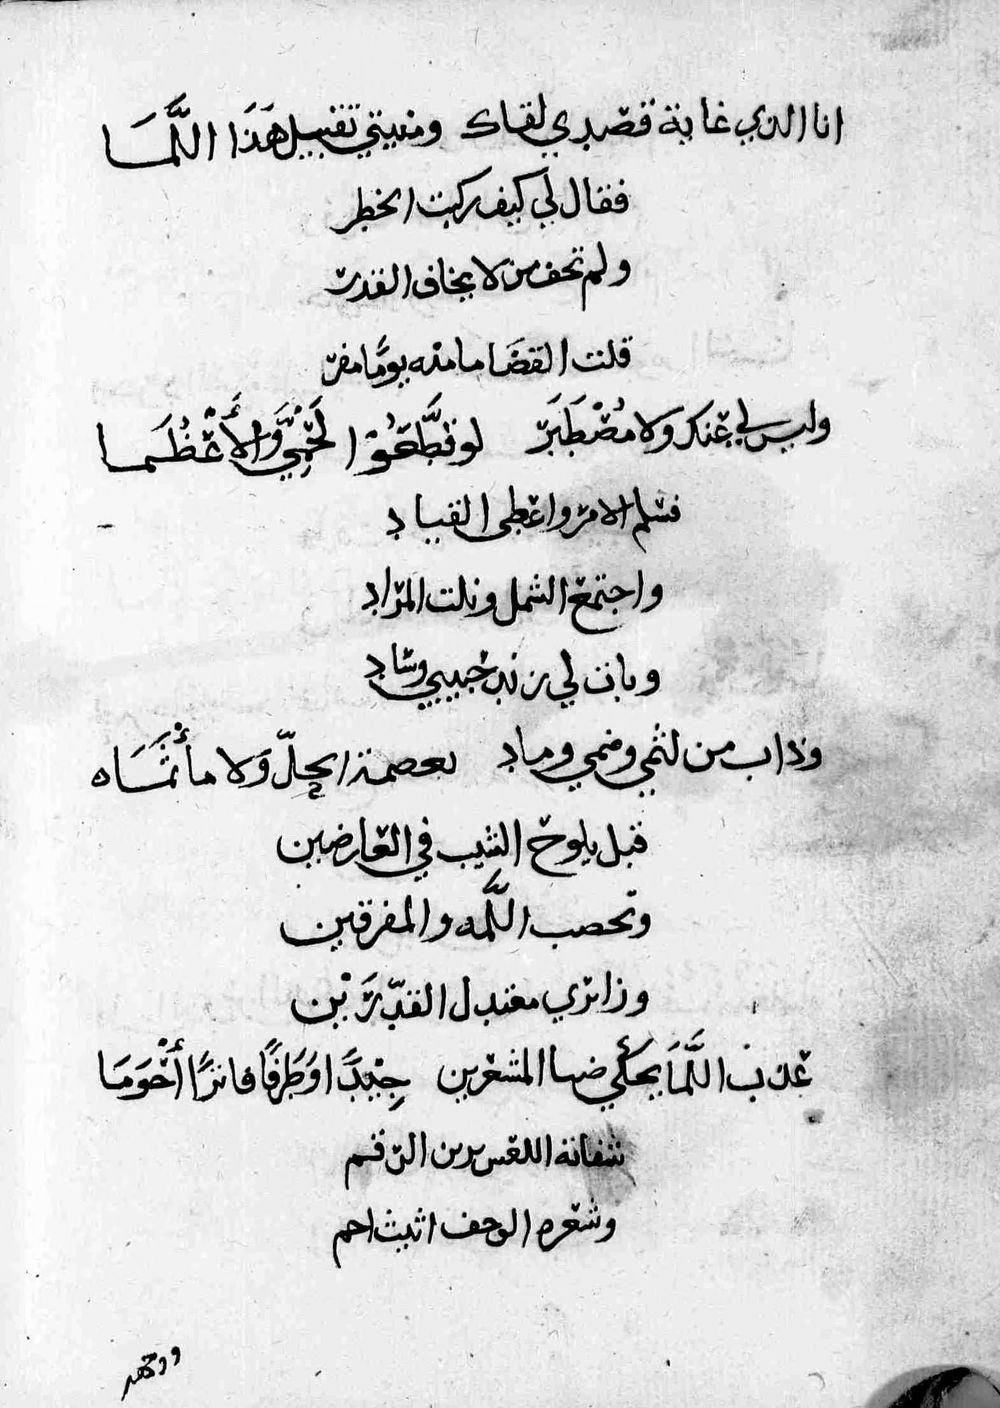 انا الذي غاية قصدي لقاك ومنيتي تقبيل هَذَا اللَّمَا
فقال لي كيف ركبت الخطر
ولم تخف من لا يخاف القدر
قلت القضَا ما منه يومًا مفر
وليس لي عنك ولا مُصْطَبَر لو قطَّعُوا لَحْمِي وَالأَعْظُمَا
فسلم الامر واعطى القياد
واجتمع الشمل ونلت المراد
وبات لي زند حبيبي وساد
وذاب من لثمي وضمي وماد بعصمة الحِلّ وَلا مأْثَمَاه
قبل يلوح الشيب في العارضين
وتخصب اللَّمه والمفرقين
وزائري معتدل القدّ زَيْن
عذب اللَّمَا يحكي ضيا المشعرين جِيْدًا وَطَرْفًا فاترًا أَحْوَمَا
شفاته اللعس بين الرقم
وشعره الوحف اثيث احم
ووجهه